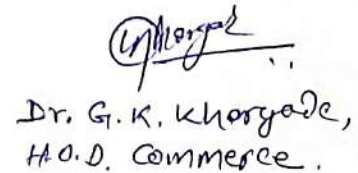 Dr. G. K. Khorgade,
H.O.D. Commerce.